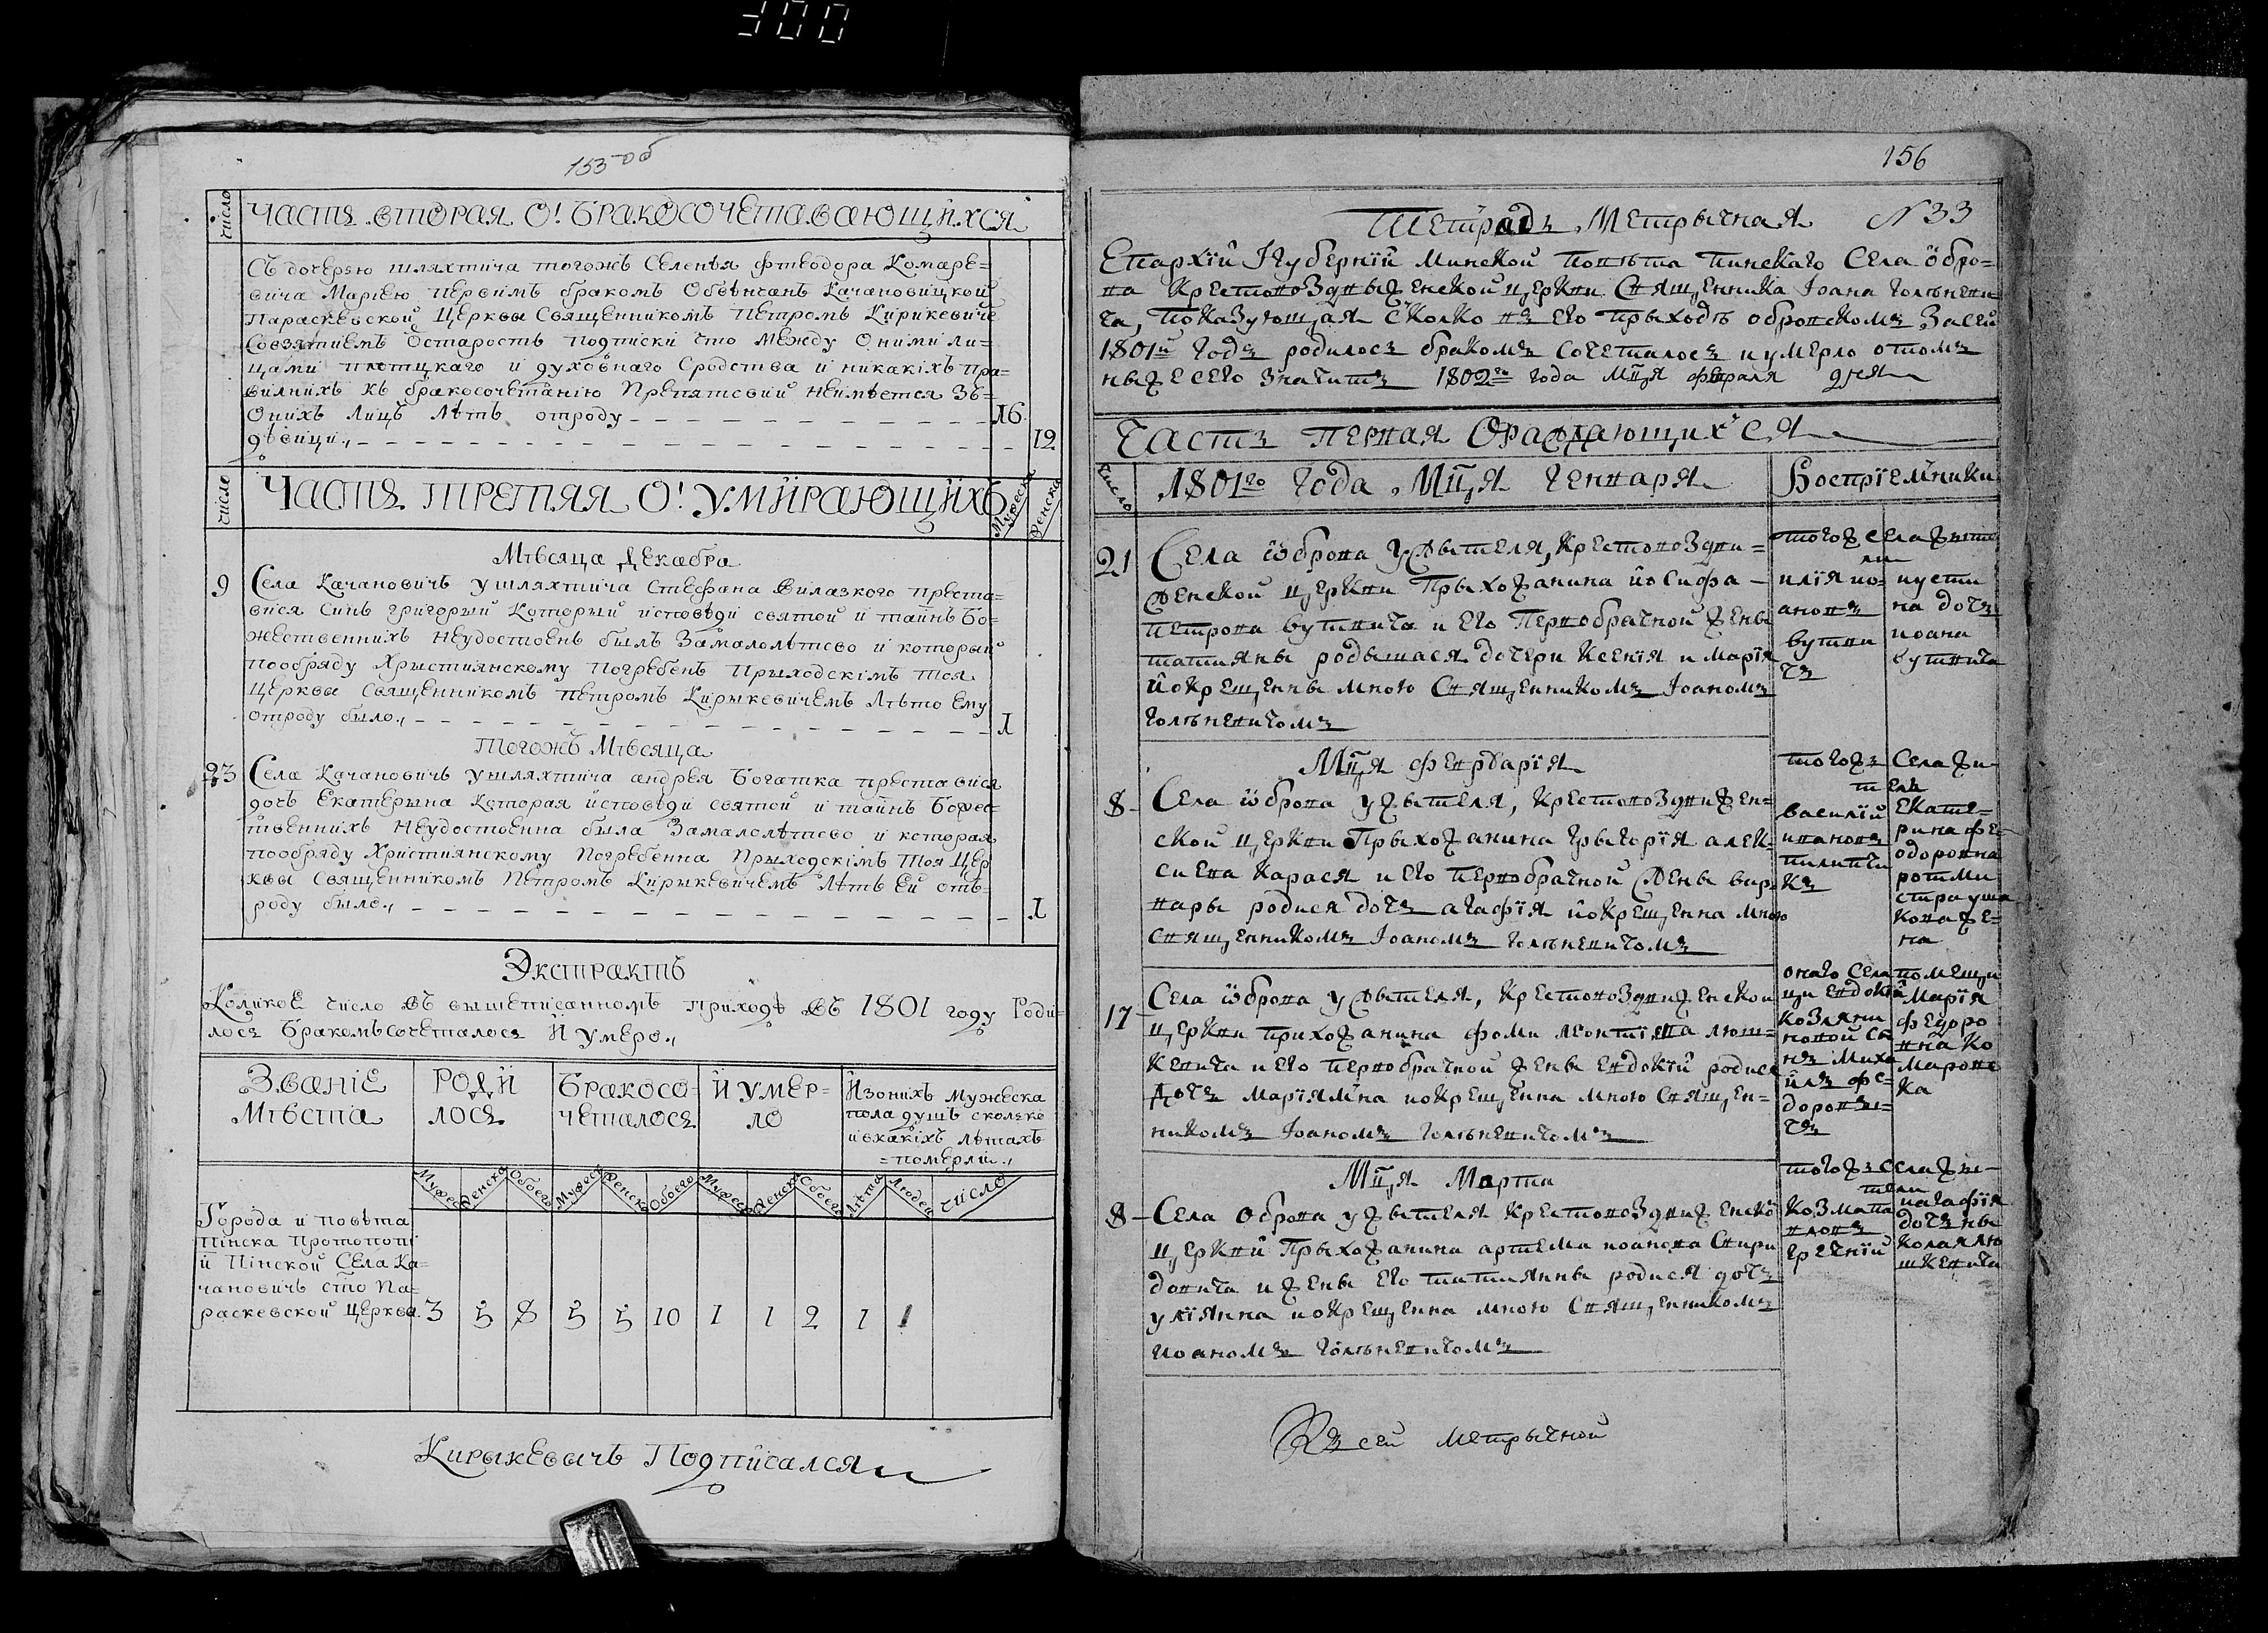 300
153 об
число
ЧАСТЬ ВТОРАЯ О! БРАКОСОЧЕТАВАЮЩИХСЯ
Съ дочерэю шляхтича тогожъ Селенъя Фтеодора Комаре=
вича Мариею первимъ бракомъ Обвѣнчанъ Качановицкой
Параскевской Церквы Священникомъ Петромъ Кирикевиче
Совзятиемъ Остарость подписки что между Оними ли=
цами плотцкаго и духовнаго Сродства и никакіхъ пра=
вилнихъ къ бракосочетанію Препятсвий неимѣется Зъ=
Онихъ Лицъ Лѣтъ отроду 16
дѣвици 12
число
ЧАСТЬ ТРЕТЯЯ О! УМИРАЮЩИХЪ
Мужеска Женска
Мѣсяца Декабра
9 Села Качановичъ у шляхтича Стефана Вилазкого преста=
вися Синъ григорый Который исповѣди святой и таинъ Бо=
жественнихъ неудостоенъ былъ Замалолѣтсво и который
пообряду Хрыстиянскому погребенъ Прыходскімъ тоя
Церквы Священникомъ Петромъ Кирыкевичемъ Лѣто Ему
отроду было 1
Тогожъ Мѣсяца
23 Села Качановичъ ушляхтича андрея Богатка преставися
дочъ Екатерына Которая исповѣди святой и таинъ Божес
твеннихъ Неудостоенна была Замалолѣтсво и которая
пообряду Християнскому Погребенна Прыходскімъ Тоя Цер
квы Священникомъ Петромъ Кирыкевичемъ Лѣтъ Ей отъ=
роду было 1
Экстрактъ
Коликое число въ вышеписанномъ приходѣ въ 1801 году Роди=
лось Бракомъ сочеталось и умеро
Званіе Мѣста
РОДИ ЛОСЬ
Бракосо= четалось
И УМЕР= ЛО
Изонихъ мужеска пола душъ сколько ивкакіхъ лѣтахъ =померли
Мужес Женска Обоего Мужес Женск Обоего Мужес Женск Обоего Лѣта Людей число
Города и повѣта
Пинска Протопопі
и Пинской Села Ка=
чановичъ сто Па=
раскевской Церквы 3 5 8 5 5 10 1 1 2 1 1
Кирыкевычъ Подписался
156
Тетрадь Метрычная N 33
Епархїи Губернїи Минской Повѣта Пинскаго Села Обро=
ва Крестовоздвыженской церкви Священника Iоана Голѣневи
ча, показующая Сколко въ Его прыходѣ обровскомъ Засей
1801й годъ родилось бракомъ Сочеталось и умерло о томъ
ныжесего значитъ 1802го года Мця февраля дня
Часть первая Ораждающихся
Число
1801го Года Мця Генваря
Воспрїемники
21 Села оброва у жытеля, Крестовоздви=
женской церкви Прыхожанина иосифа
петрова вутвича и Его Первобрачной жены
татияны родышася дочери Ксенїя и Марїя
иокрещенны мною Священникомъ Iоаномъ
Голѣневичомъ
тогожъ села жите
ли
илїя ио=
ановъ
вутви
чъ
иусти
на дочъ
иоана
вутвича
Мця февруарїя
8 Села оброва у жытеля, Крестовоздвижен=
ской церкви Прыхожанина Грыгорїя алек=
сиева Карася и Его первобрачной жены вар
вары родися дочъ агафїя иокрещенна мною
Священникомъ Iоаномъ Голѣневичомъ
тогожъ Села жи
тели
василїй
ивановъ
пилипчи
Къ
Екате=
рина фе=
одоровна
ротми
стра уша
кова же=
на
17 Села оброва у жытеля, Крестовоздвиженской
церкви прихожанина фоми леонтїева люш=
кевича и Его первобрачной жены Евдокїи родися
дочъ Марїямна иокрещенна мною Священ=
никомъ Iоаномъ Голѣневичомъ
онаго Села помещи
ци Евдокїи
Козляни
новой Сы
нъ Миха
илъ фе=
доровы=
чъ
Марїя
федоро
вна Ко
маровс
Ка
Мця Марта
8 Села оброва у жытеля Крестовоздвиженско
церкви Прыхожанина артема иоанова Спири
довича и жены Его татиянны родися дочъ
улїянна иокрещенна мною Священникомъ
иоаномъ Голѣневичомъ
тогожъ Села жы
тели
Козма па
вловъ
Гречнїй
иагафїя
дочъ ны
колая лю
шкевича
Къ сей метрычной